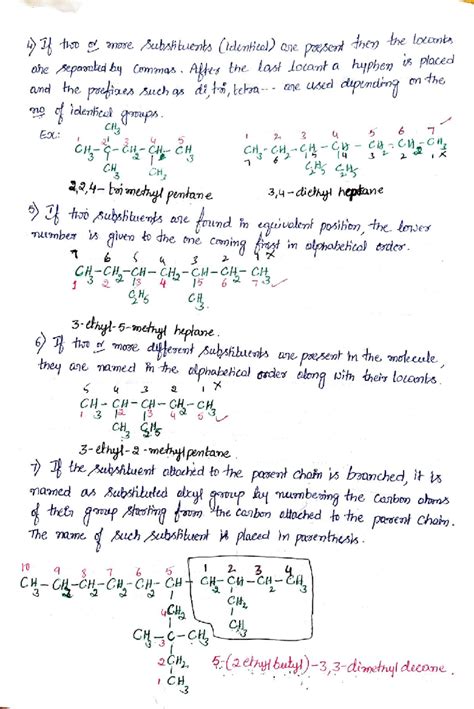 4) If two or more substituents (identical) are present then the locants
are separated by commas. After the last locant a hyphen is placed
and the prefixes such as di, tri, tetra... are used depending on the
no of identical groups.
Ex:
CH3
1 2 3 4 5
CH3-C-CH2-CH-CH3
CH3 CH3
2,2,4-trimethyl pentane
1 2 3 4 5 6 7 ✓
CH3-CH2-CH-CH-CH2-CH2-CH3
7 6 5 4 3 2 1 ×
C2H5 C2H5
3,4-diethyl heptane
5) If two substituents are found in equivalent position, the lower
number is given to the one coming first in alphabetical order.
7 6 5 4 3 2 1 ×
CH3-CH2-CH-CH2-CH-CH2-CH3
1 2 3 4 5 6 7 ✓
C2H5 CH3
3-ethyl-5-methyl heptane.
6) If two or more different substituents are present in the molecule,
they are named in the alphabetical order along with their locants.
5 4 3 2 1 ×
CH3-CH-CH-CH2-CH3
1 2 3 4 5 ✓
CH3 C2H5
3-ethyl-2-methylpentane.
7) If the substituent attached to the parent chain is branched, it is
named as substituted alkyl group by numbering the carbon atoms
of their group starting from the carbon attached to the parent chain.
The name of such substituent is placed in parenthesis.
10 9 8 7 6 5 1 2 3 4
CH3-CH2-CH2-CH2-CH2-CH-CH2-CH-CH2-CH3
4CH2 CH2
CH3
CH3-C-CH3
3
2CH2
1CH3
5-(2ethylbutyl)-3,3-dimethyl decane.